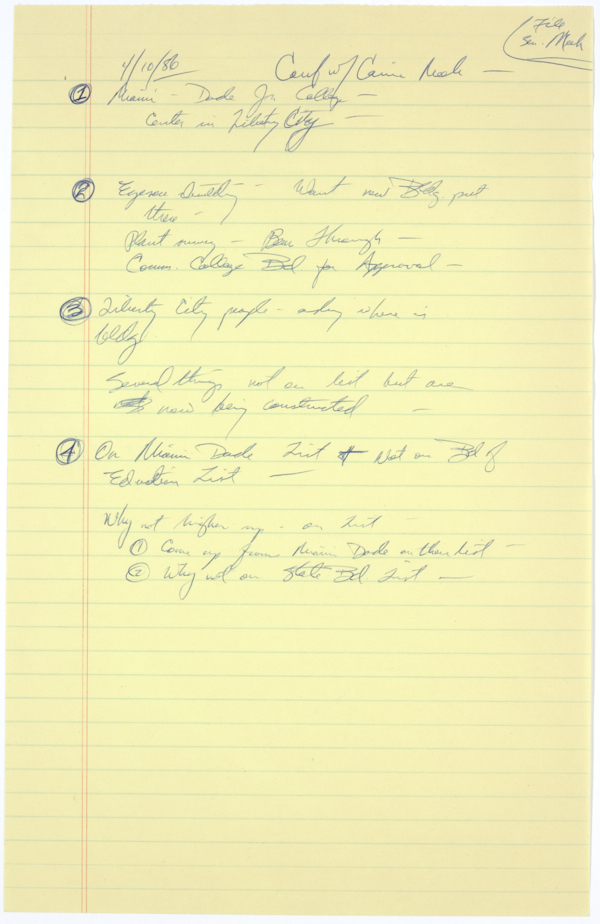 File
Sen. Meek
4/10/86 Conf w/ Carrie Meek —
① Miami - Dade Jr. College —
Center in Liberty City —
② Building - Want new Bldg put
there -
Plant survey - Been through —
Comm. College Bd for Approval —
③ Liberty City people - asking where is
bldg.
Several things not on list but are
now being constructed —
④ On Miami Dade List Not on Bd of
Education List —
Why not higher up - on List —
① Come up from Miami Dade on their list —
② Why not on State Bd List —